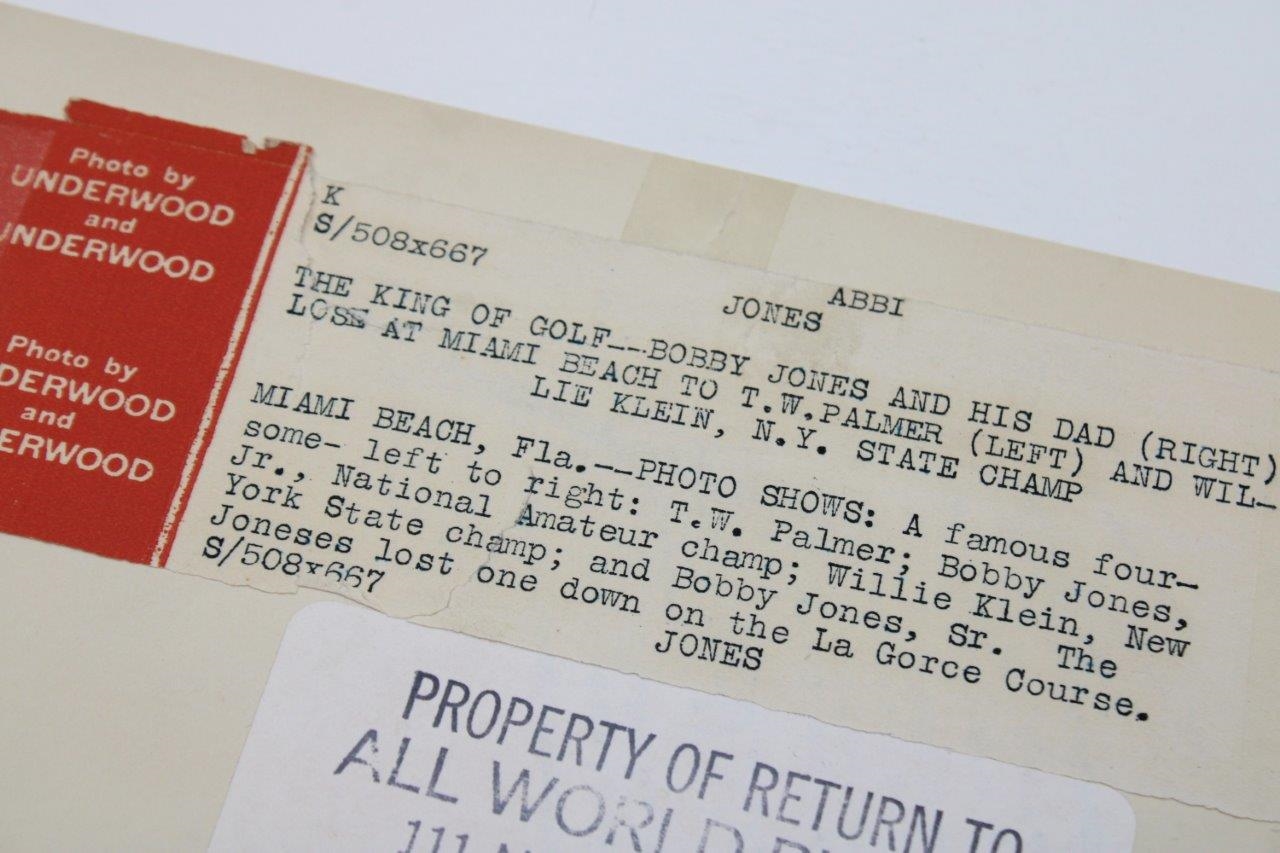 Photo by
UNDERWOOD
and
UNDERWOOD
Photo by
DERWOOD
and
ERWOOD
K
S/508x667
ABBI
JONES
THE KING OF GOLF--BOBBY JONES AND HIS DAD (RIGHT)
LOSE AT MIAMI BEACH TO T.W.PALMER (LEFT) AND WIL-
LIE KLEIN, N.Y. STATE CHAMP
MIAMI BEACH, Fla.--PHOTO SHOWS: A famous four-
some- left to right: T.W. Palmer; Bobby Jones,
Jr., National Amateur champ; Willie Klein, New
York State champ; and Bobby Jones, Sr. The
Joneses lost one down on the La Gorce Course.
S/508x667
JONES
PROPERTY OF RETURN TO
ALL WORLD
111